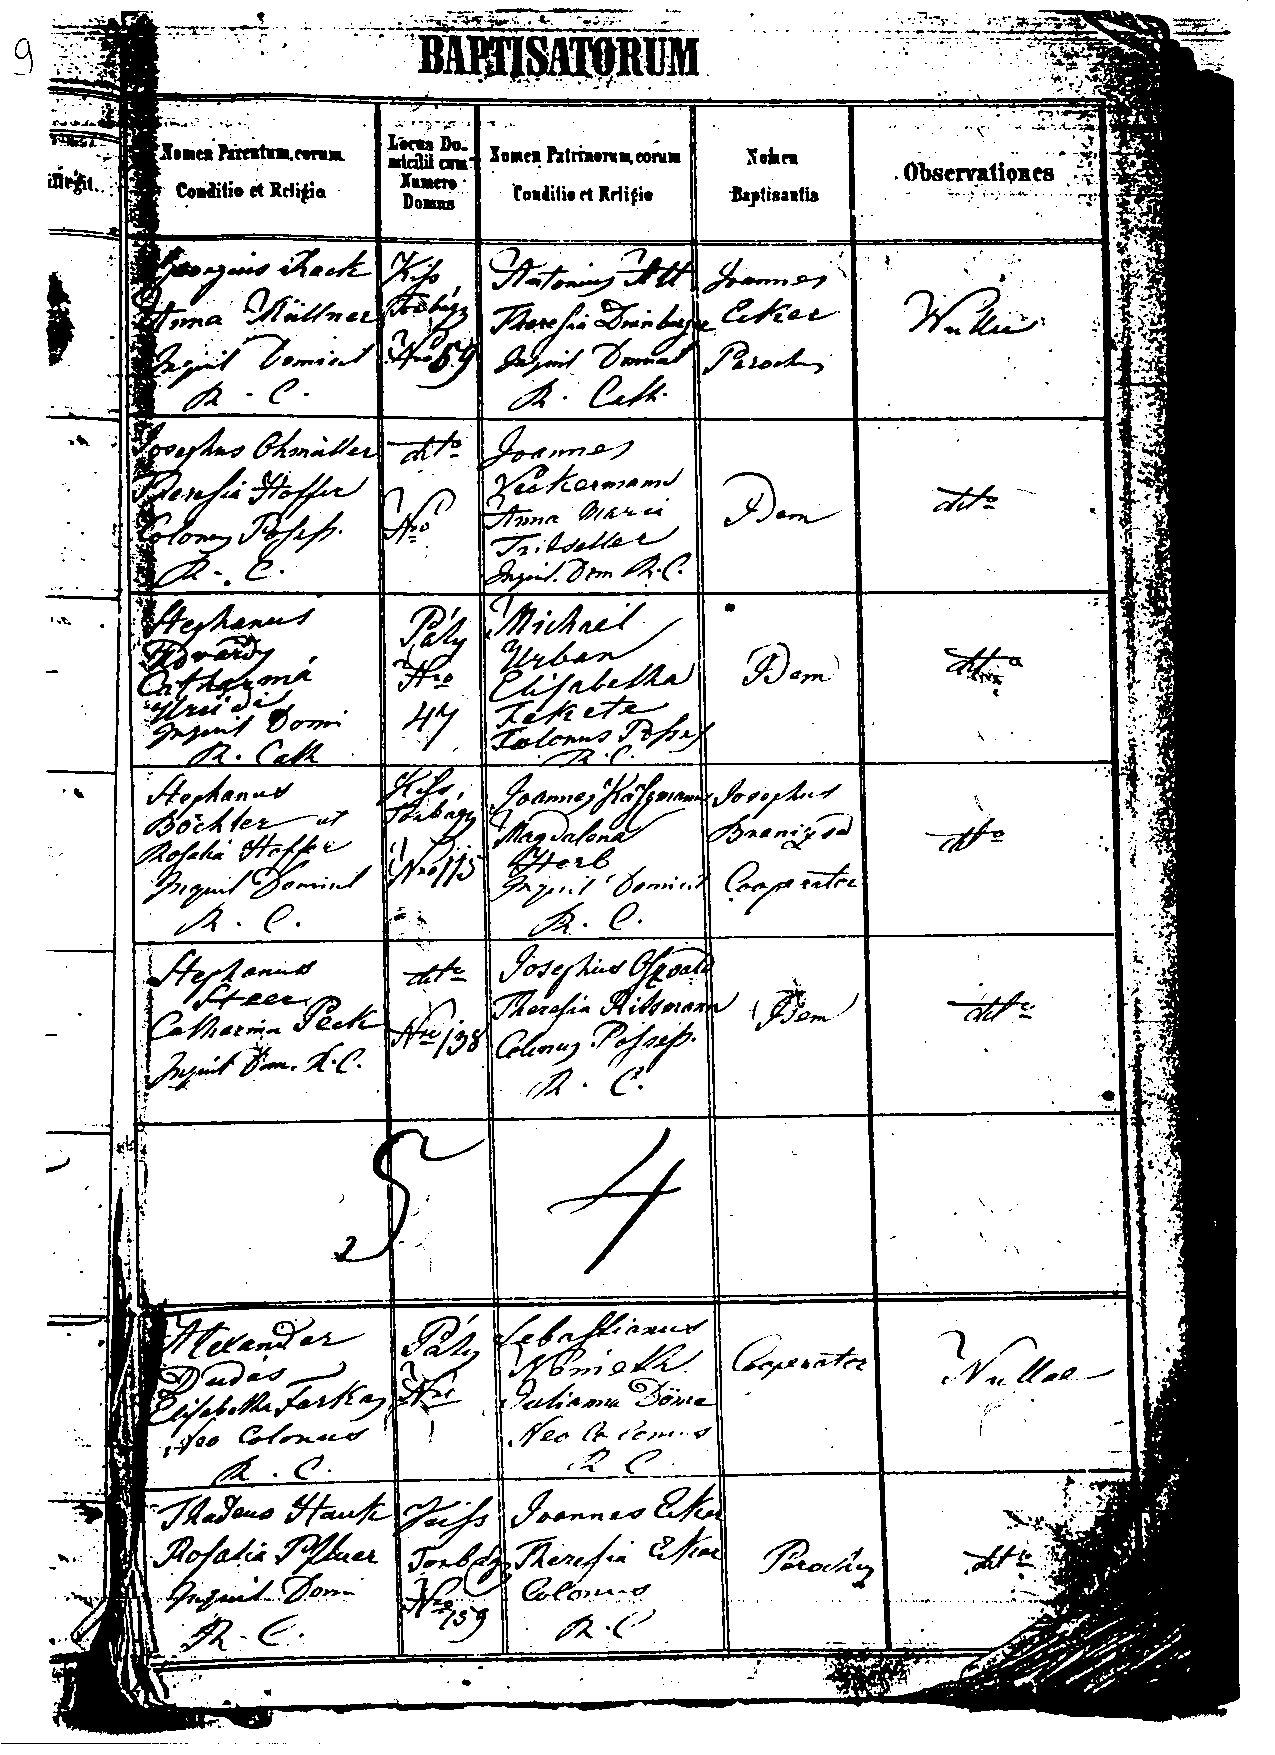 9
BAPTISATORUM
Nomen Parentum, eorum
Conditio et Religio
Locus Do-
micilii cum
Numero
Domus
Nomen Patrinorum, eorum
Conditio et Religio
Nomen
Baptisantis
Observationes
Anna Müllner
Inquil Domini
R. C.
Kiss
Torbágy
Nro 59
Antonius Att
Theresia
Inquil Domini
R. Cath.
Joannes
Ecker
Parochus
Nullae
Josephus Ohmüller
Theresia Hoffer
Colonus Possess.
R. C.
dtto
Nro
Joannes
Anna Maria
Inquil. Dom R. C.
Idem
dtto
Stephanus
Catharina
Inquil Domi
R. Cath
Páty
Nro
47
Michael
Urban
Elisabetha
Fekete
Colonus Possess
R. C.
Idem
dtto
Stephanus
Böchler et
Rosalia Hoffer
Inquil Domini
R. C.
Kiss
Torbágy
Nro 115
Joannes
Magdalena
Herb
Inquil Domini
R. C.
Josephus
Cooperator
dtto
Stephanus
Catharina Peck
Inquil Dom. R. C.
dtto
Nro 138
Josephus Oswald
Theresia Rittmann
Colonus Possess.
R. C.
Idem
dtto
5 4
Alexander
Dudás
Elisabetha Farkas
Neo Colonus
R. C.
Páty
Nro
Sebastianus
Juliana
Neo Colonus
R C
Cooperator
Nullae
Thadeus Hauk
Rosalia
Inquil Domi
R. C.
Kiss
Torbágy
Nro 159
Joannes Ecker
Theresia Ecker
Colonus
R. C
Parochus
dtto